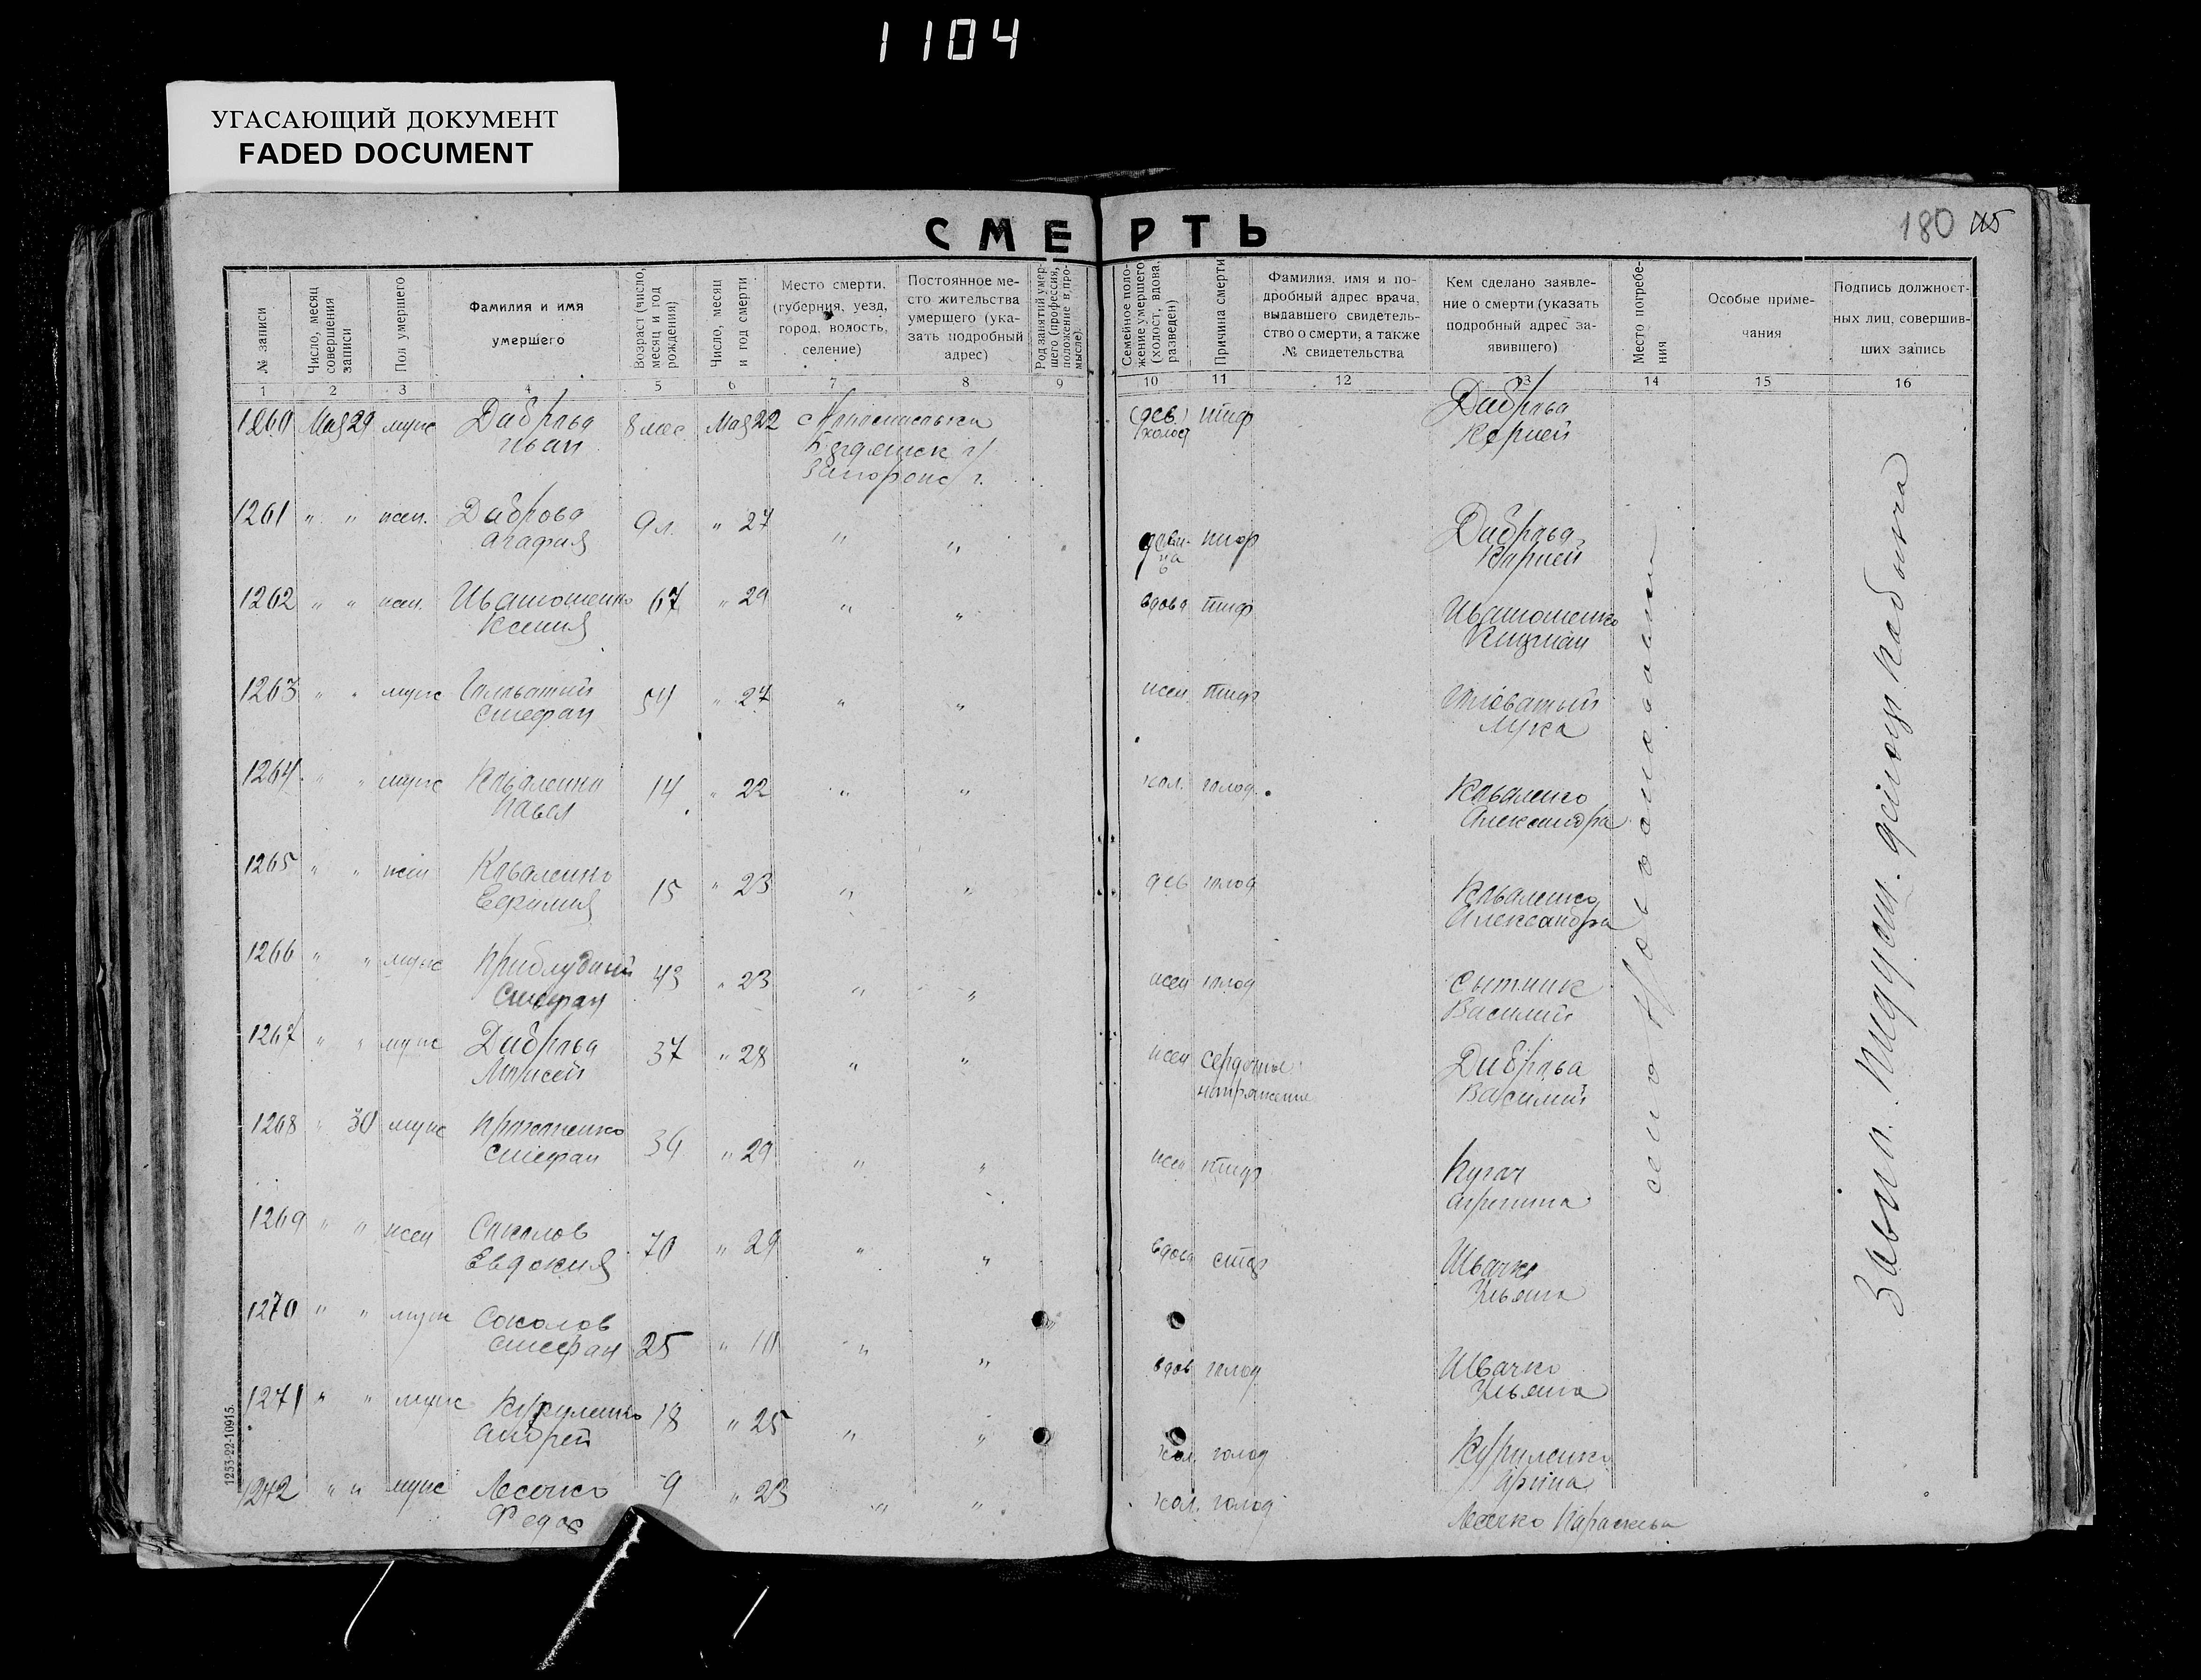 1104
УГАСАЮЩИЙ ДОКУМЕНТ
FADED DOCUMENT
СМЕРТЬ
180 115
№ записи
Число, месяц совершения записи
Пол умершего
Фамилия и имя умершего
Возраст (число, месяц и год рождения)
Число, месяц и год смерти
Место смерти, (губерния, уезд, город, волость, селение)
Постоянное место жительства умершего (указать подробный адрес)
Род занятий умершего (профессия, положение в промысле).
Семейное положение умершего (холост, вдова, разведен)
Причина смерти
Фамилия, имя и подробный адрес врача, выдавшего свидетельство о смерти, а также № свидетельства
Кем сделано заявление о смерти (указать подробный адрес заявившего)
Место погребения
Особые примечания
Подпись должностных лиц, совершивших запись
1 2 3 4 5 6 7 8 9 10 11 12 13 14 15 16
1260 Мая 29 муж Диброва Иван 8 мес. Мая 22 (дев) холост тиф Диброва Корней
1261 " " жен. Диброва Агафия 9 л. " 27 " " девица тиф Диброва Корней
1262 " " жен. Ивашошенко Ксения 67 " 29 " " вдова тиф Ивашошенко
1263 " " муж Стефан 54 " 27 " " жен тиф Лука
1264 " " муж Коваленко Павел 14 " 22 " " хол. голод. Коваленко Александра
1265 " " жен Коваленко Ефимия 15 " 23 " " дев голод Коваленко Александра
1266 " " муж Приблудный Стефан 43 " 23 " " жен голод Сытник Василий
1267 " " муж Диброва Моисей 37 " 28 " " жен Диброва Василий
1268 " 30 муж Стефан 34 " 29 " " жен тиф Пугач
1269 " " жен Соколов Евдокия 70 " 29 " " вдова Швачко Ульяна
1270 " " муж Соколов Стефан 25 " 10 " " вдов голод Швачко Ульяна
1271 " " муж Куриленко Андрей 18 " 25 " " хол. голод Куриленко Арина
1272 " " муж Лесечко Федос 9 " 23 " " хол. голод Лесечко Параскева
село
1253-22-10915.